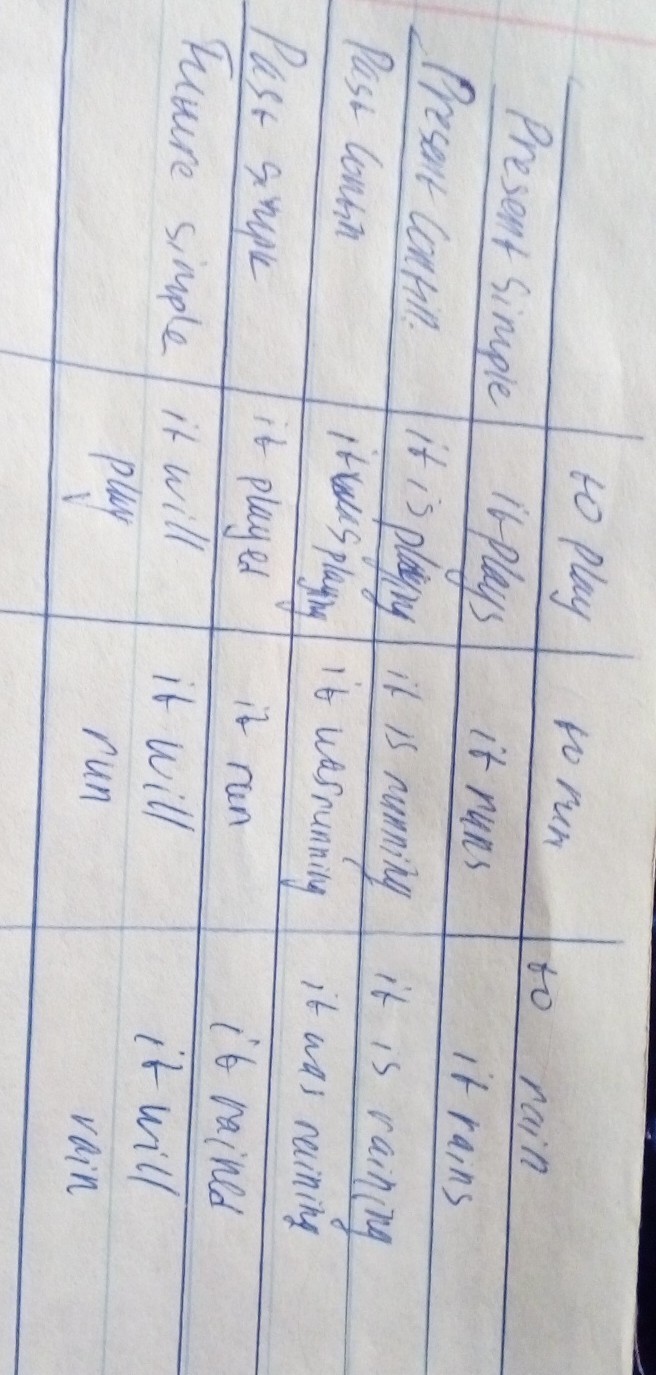 to play to run to rain
Present Simple it plays it runs it rains
Present Contin. it is playing it is running it is raining
Past Contin it was playing it was running it was raining
Past simple it played it run it rained
Future simple it will it will it will
play run rain